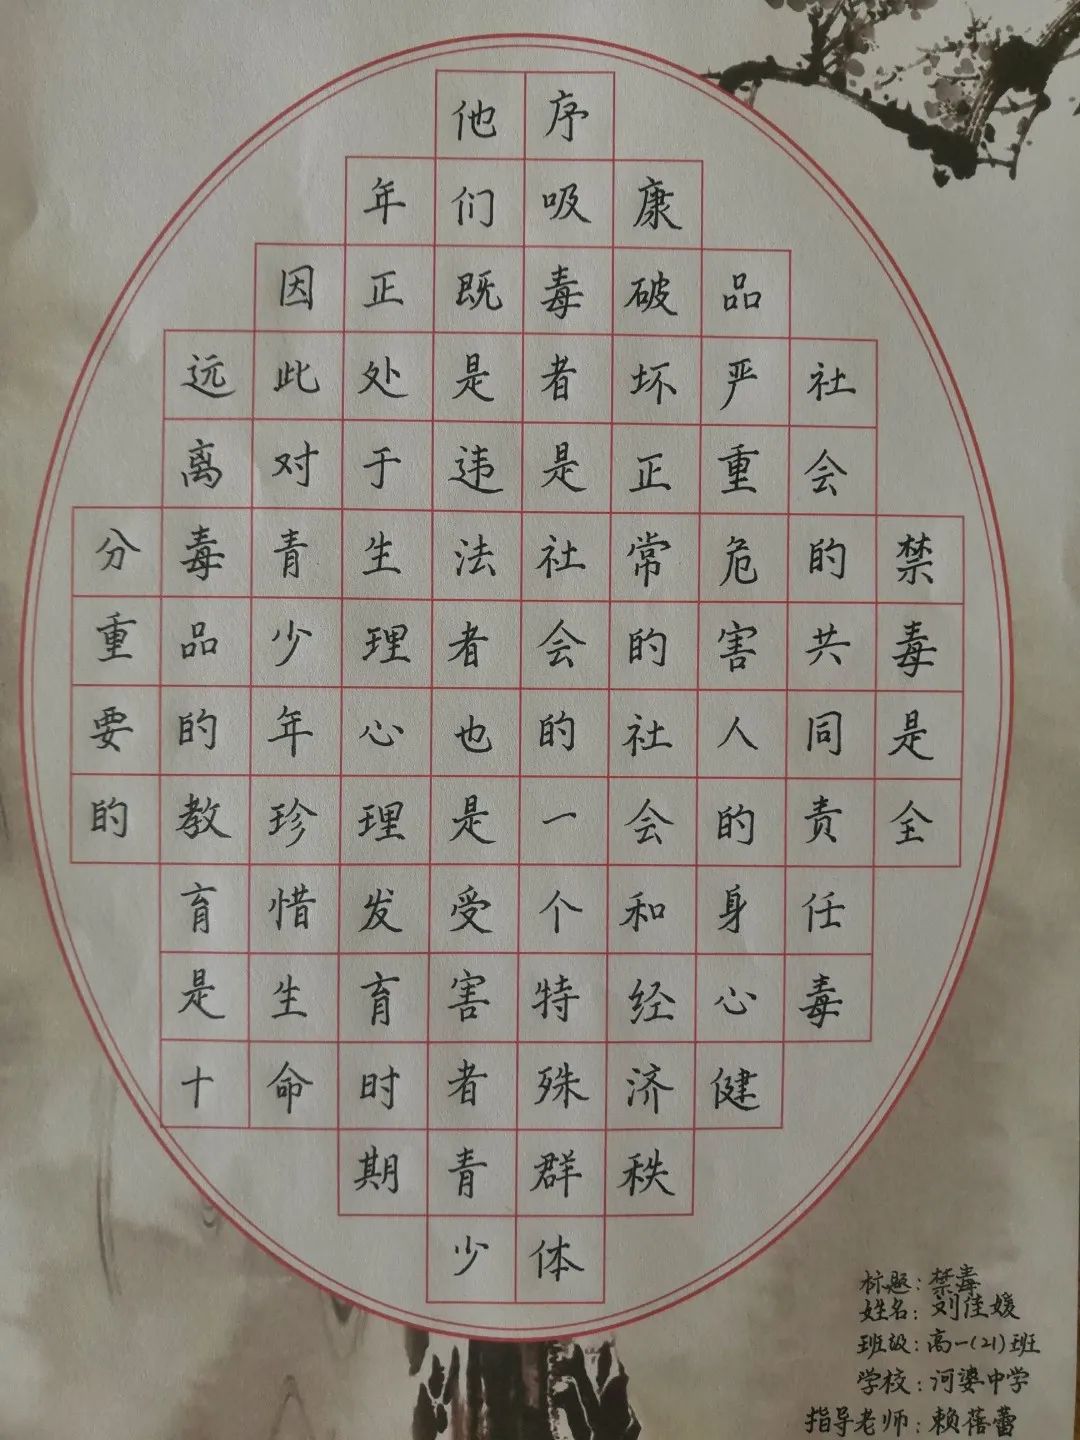 禁毒是全
社会的共同责任毒
品严重危害人的身心健
康破坏正常的社会和经济秩
序吸毒者是社会的一个特殊群体
他们既是违法者也是受害者青少
年正处于生理心理发育时期
因此对青少年珍惜生命
远离毒品的教育是十
分重要的
标题：禁毒
姓名：刘佳媛
班级：高一(21)班
学校：河婆中学
指导老师：赖蓓蕾